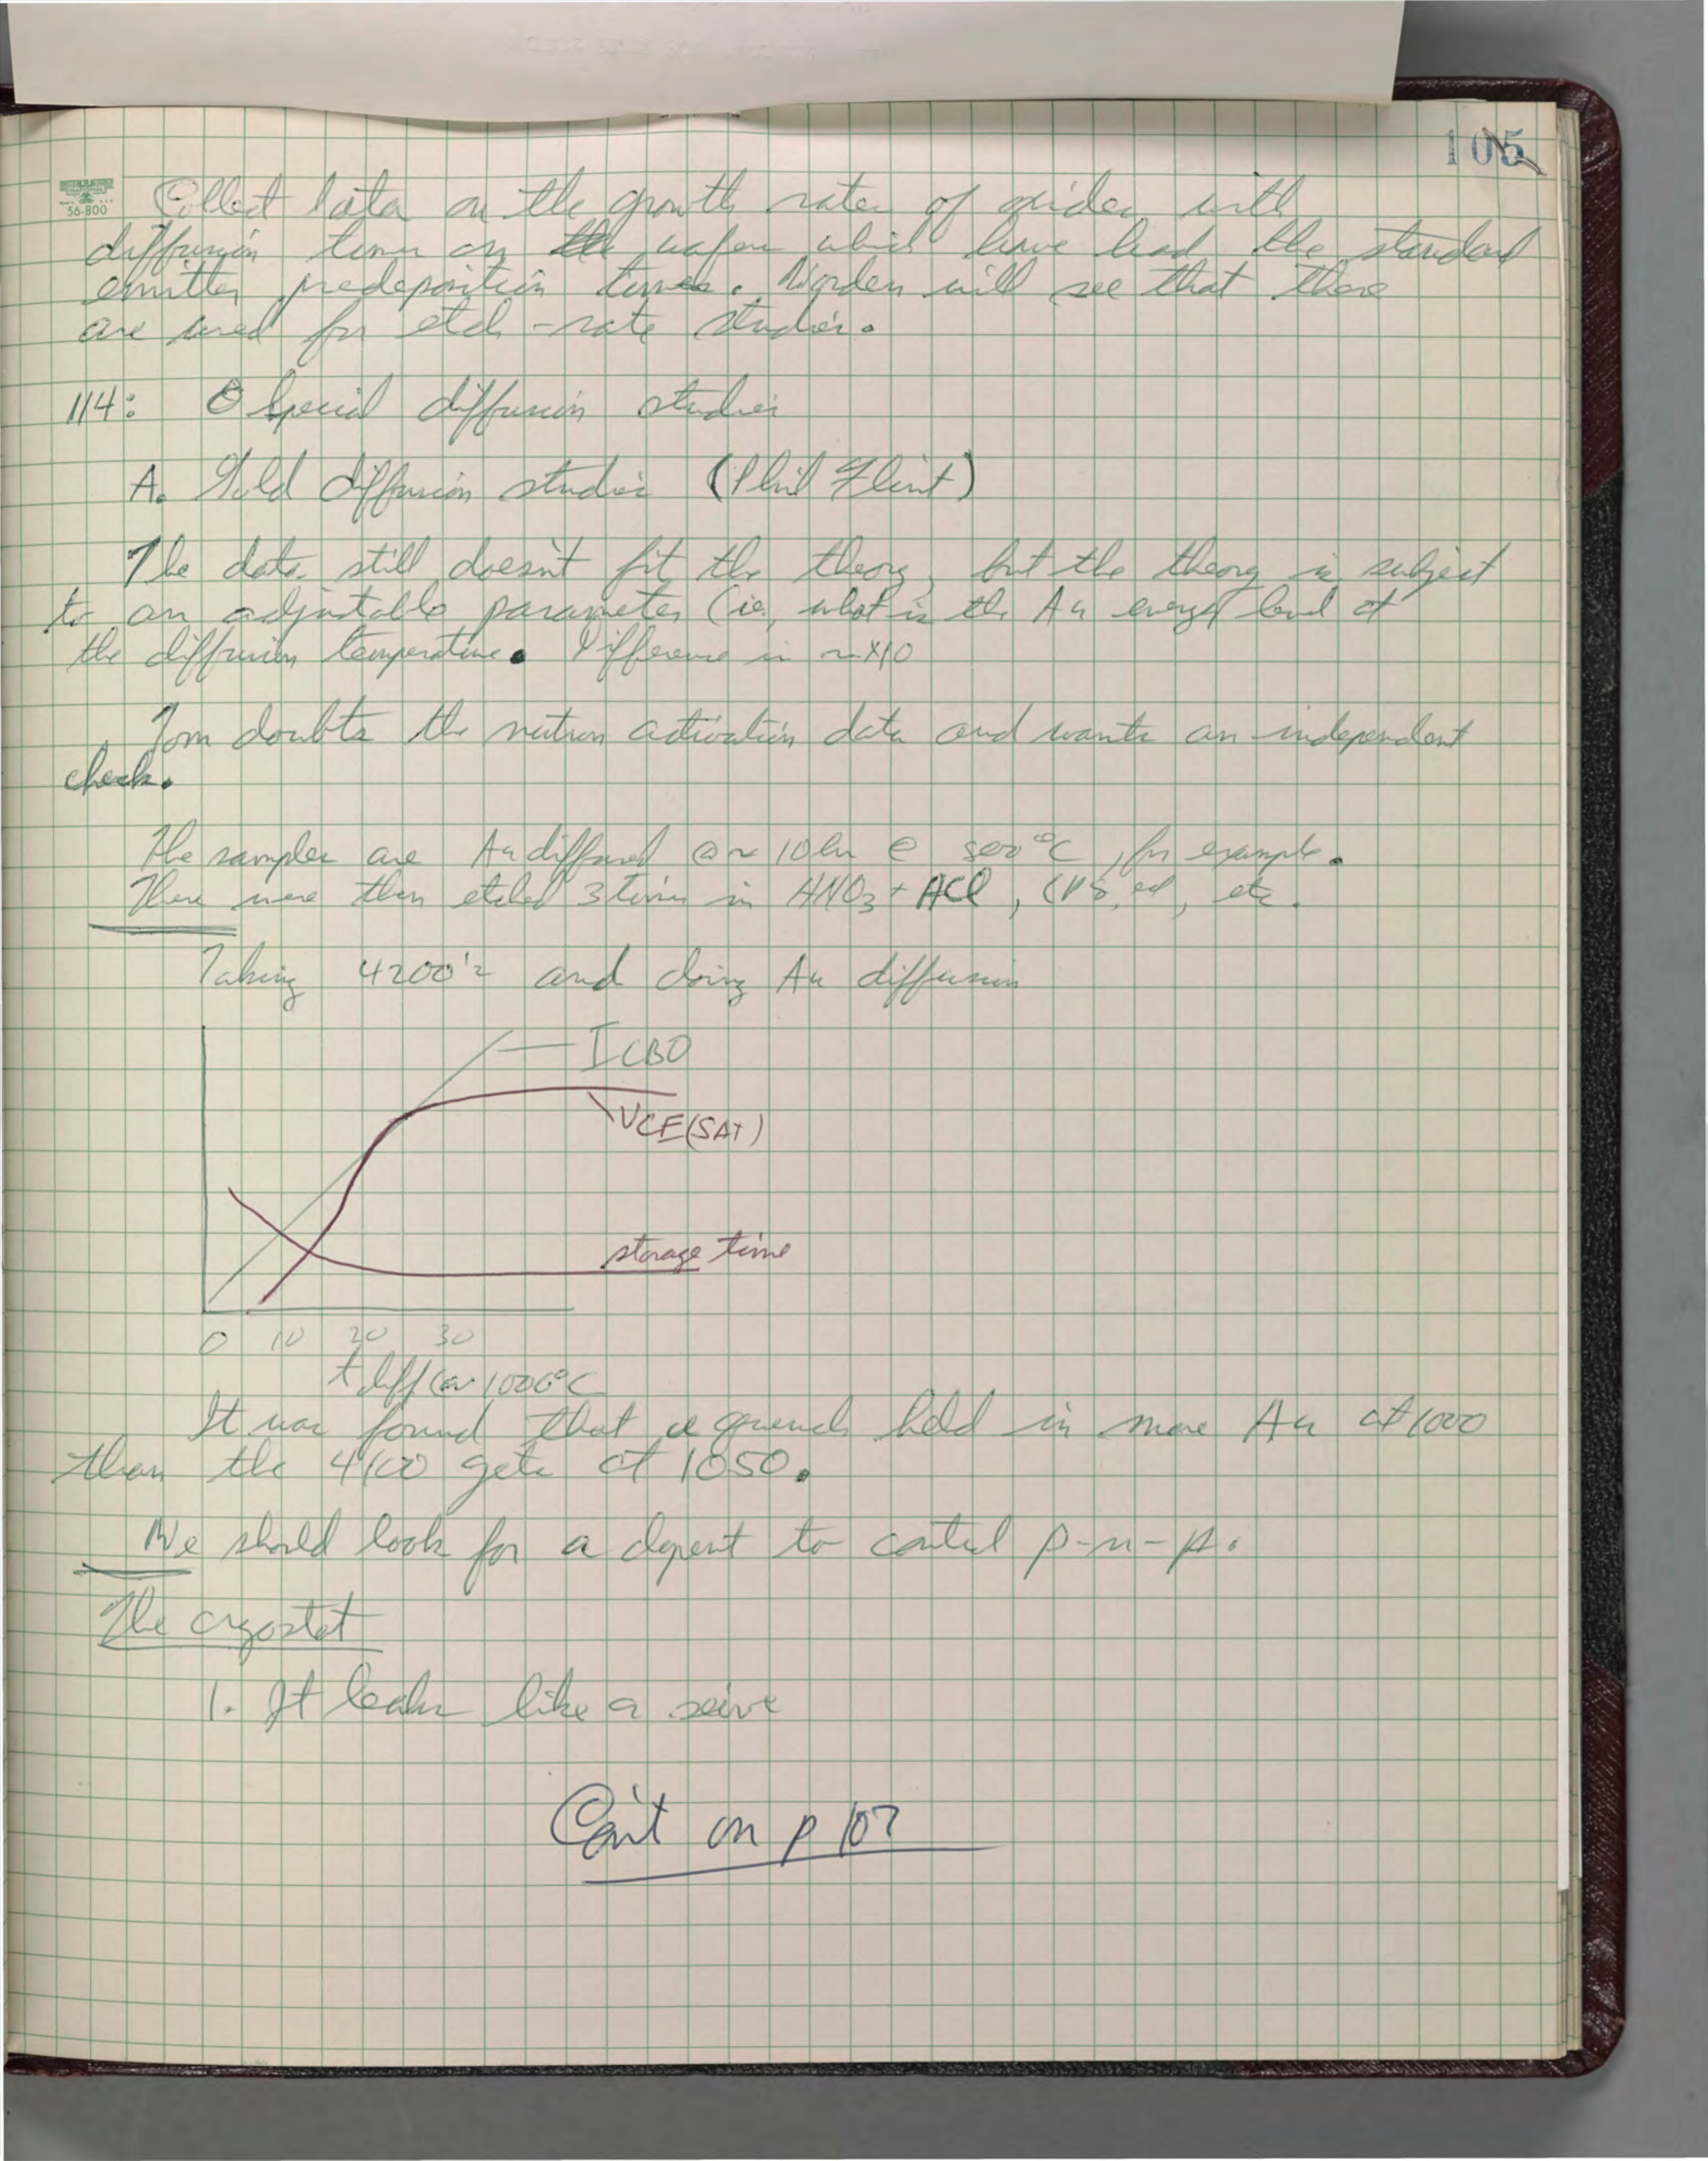 105
56-800
Collect data on the growth rates of oxides with
diffusion time on the wafers which have had the standard
emitter predeposition times. Worden will see that these
are used for etch-rate studies.
114: Special diffusion studies
A. Gold diffusion studies (Phil Flint)
The data still doesn't fit the theory, but the theory is subject
to an adjustable parameter (ie, what is the Au energy level at
the diffusion temperature. Difference is ~x10
Tom doubts the nutron activation data and wants an independent
check.
The samples are Au diffused ~ 10 hr @ 800°C, for example.
These were then etched 3 times in HNO3 + HCl, CP8, etc.
Taking 4200's and doing Au diffusion
ICBO
VCE(SAT)
storage time
0 10 20 30
t diff @ 1000°C
It was found that a quench held in more Au at 1000
than the 4100 gets at 1050.
We should look for a dopent to control p-n-p.
The cryostat
1. It leaks like a seive
Con't on p 107